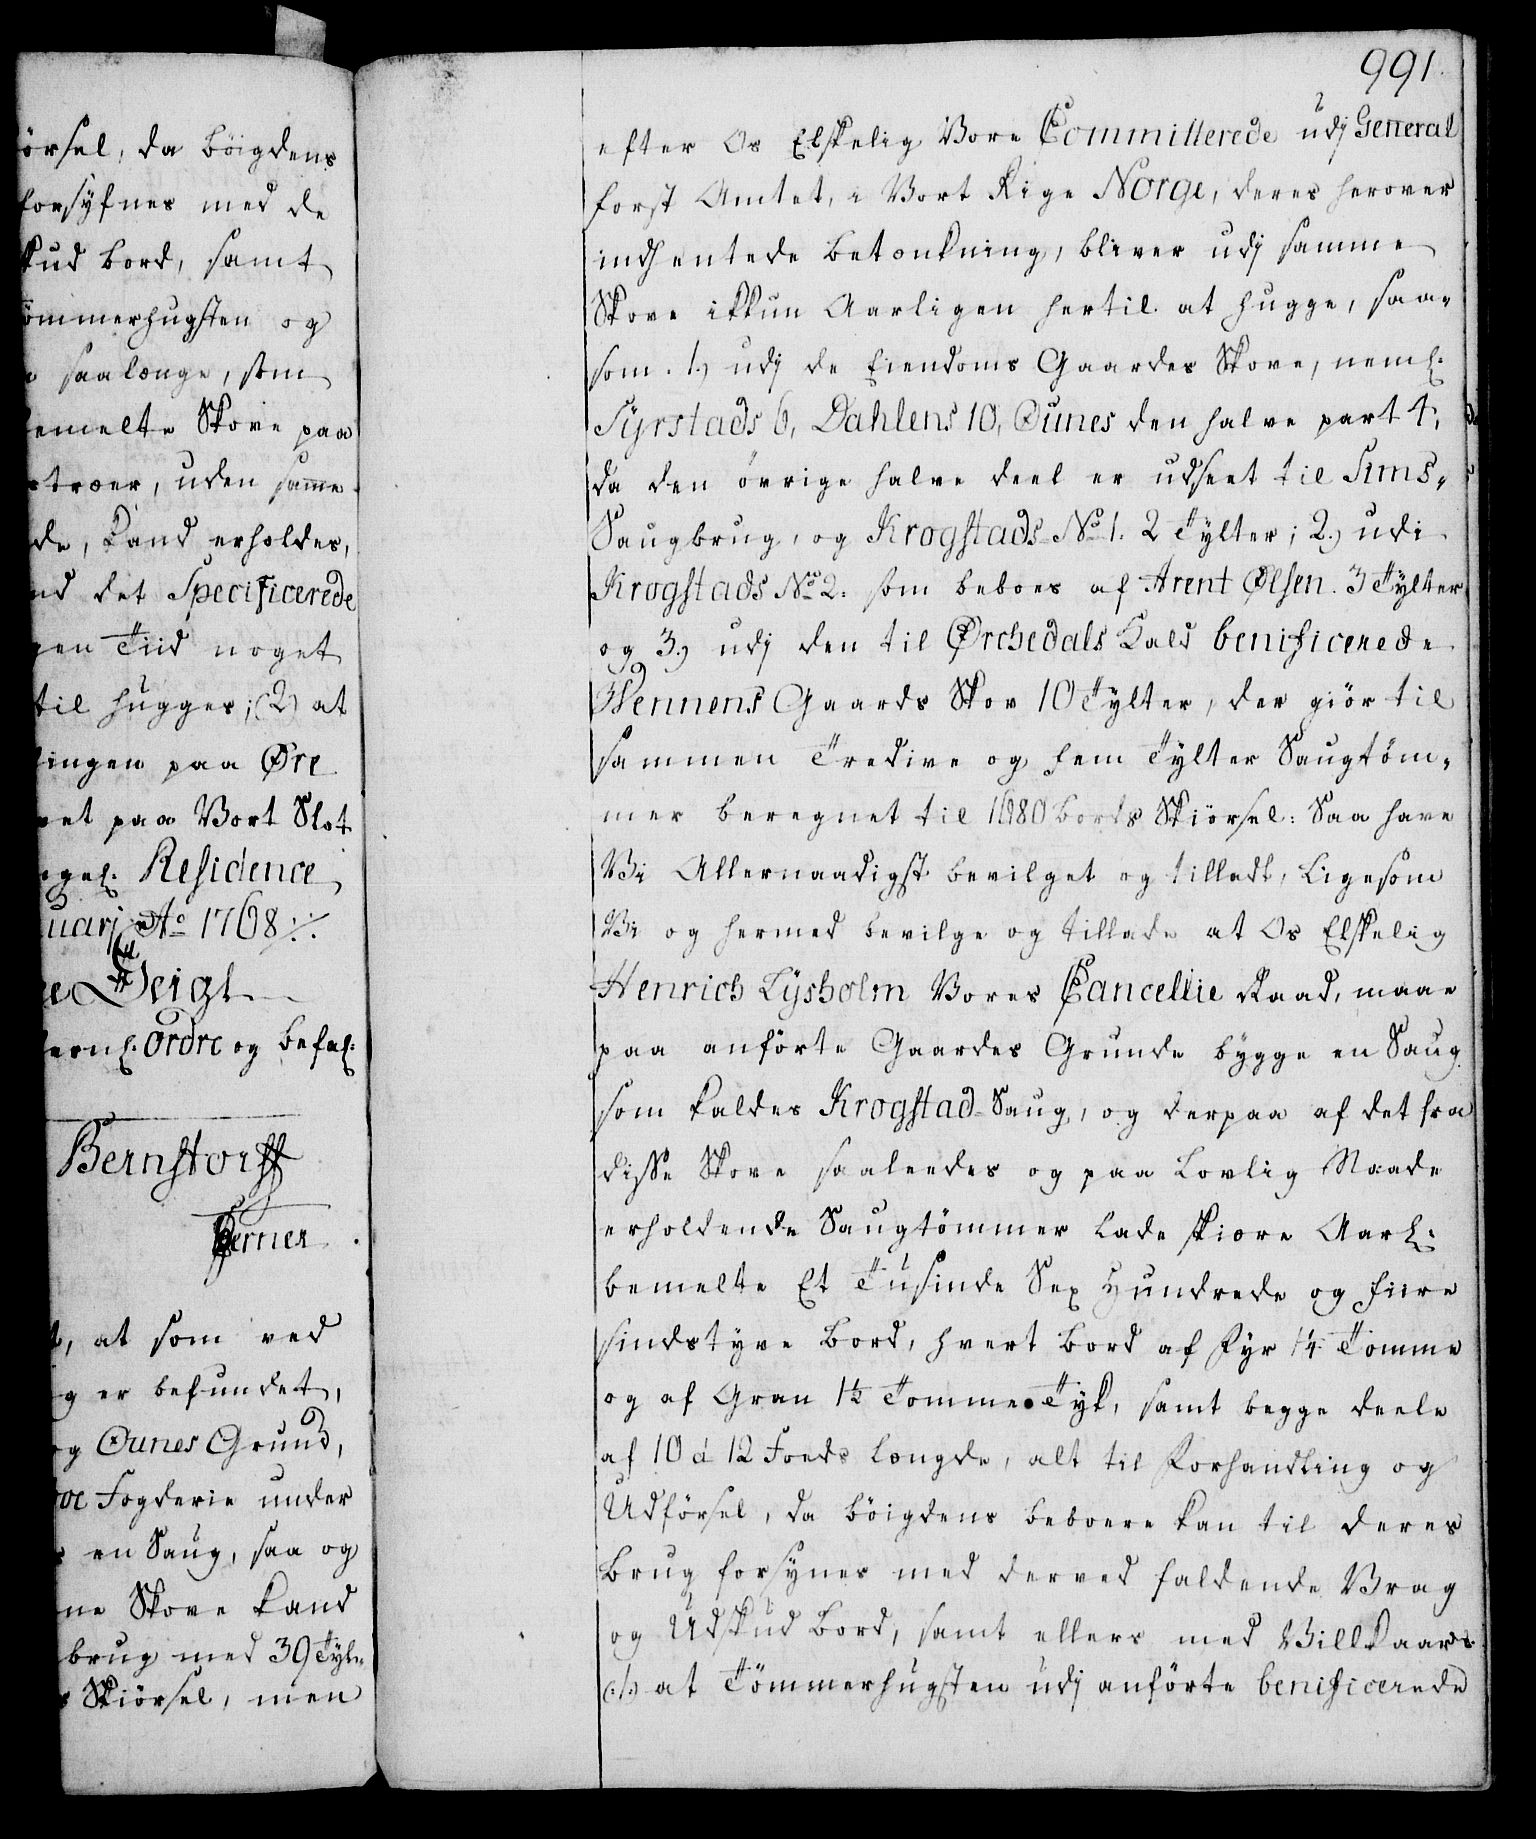 örsel, da böigdens
forsyfnes med de
kud bord, samt
ömmerhugsten og
saalænge, som
emelte Skove paa
træer, uden samme
de, kand erholdes,
nd det Specificerede
gen Tiid noget
til hugges; (2) at
lingen paa Øre
et paa Vort Slot
gel. Residence
uarj Ao 1768 ./.
Seigt
ernl. Ordre og Befal.
Bernstorff
Berner
, at som ved
g er befundet,
og Ounes Grund,
oe Fogderie under
en Saug, saa og
ne Skove kand
brug med 39 Tyl-
Skiörsel, men
991
efter Os Elskelig Vore Committerede udj General
forst Amtet, i Vort Rige Norge, deres herover
indhentede betænkning, bliver udj samme
Skove ikkun Aarligen hertil at hugge, saa-
som. 1.) udj de Eiendoms Gaardes Skove, neml.
Syrstads 6, Dahlens 10, Ounes den halve part 4,
da den övrige halve deel er udseet til Sims-
Saugbrug, og Krogstads No 1. 2 Tylter; 2.) udi
Krogstads No 2. som beboes af Arent Olsen. 3 Tylter
og 3.) udj den til Ørchedals Kald benificerede
Wennens Gaards Skov 10 Tylter, der giör til
sammen Tredive og fem Tylter Saugtöm-
mer beregnet til 1680 bords Skiörsel: Saa have
Vi Allernaadigst bevilget og tilladt, Ligesom
Vi og hermed bevilge og tillade at Os Elskelig
Henrich Lysholm Vores Cancellie Raad, maae
paa anförte Gaardes Grunde bygge en Saug
som kaldes Krogstad-Saug, og derpaa af det fra
disse Skove saaleedes og paa Lovlig Maade
erholdende Saugtömmer lade skiære Aarl.
bemelte Et Tusinde Sex Hundrede og fiire
sindstyve bord, hvert bord af Fyr 1¼ Tomme
og af Gran 1½ Tomme Tyk, samt begge deele
af 10 á 12 Foeds længde, alt til Forhandling og
Udförsel, da böigdens beboere kan til deres
brug forsynes med derved faldende Vrag
og Udskud bord, samt ellers med Villkaar
(:1.) at Tömmerhugsten udj anförte benificerede